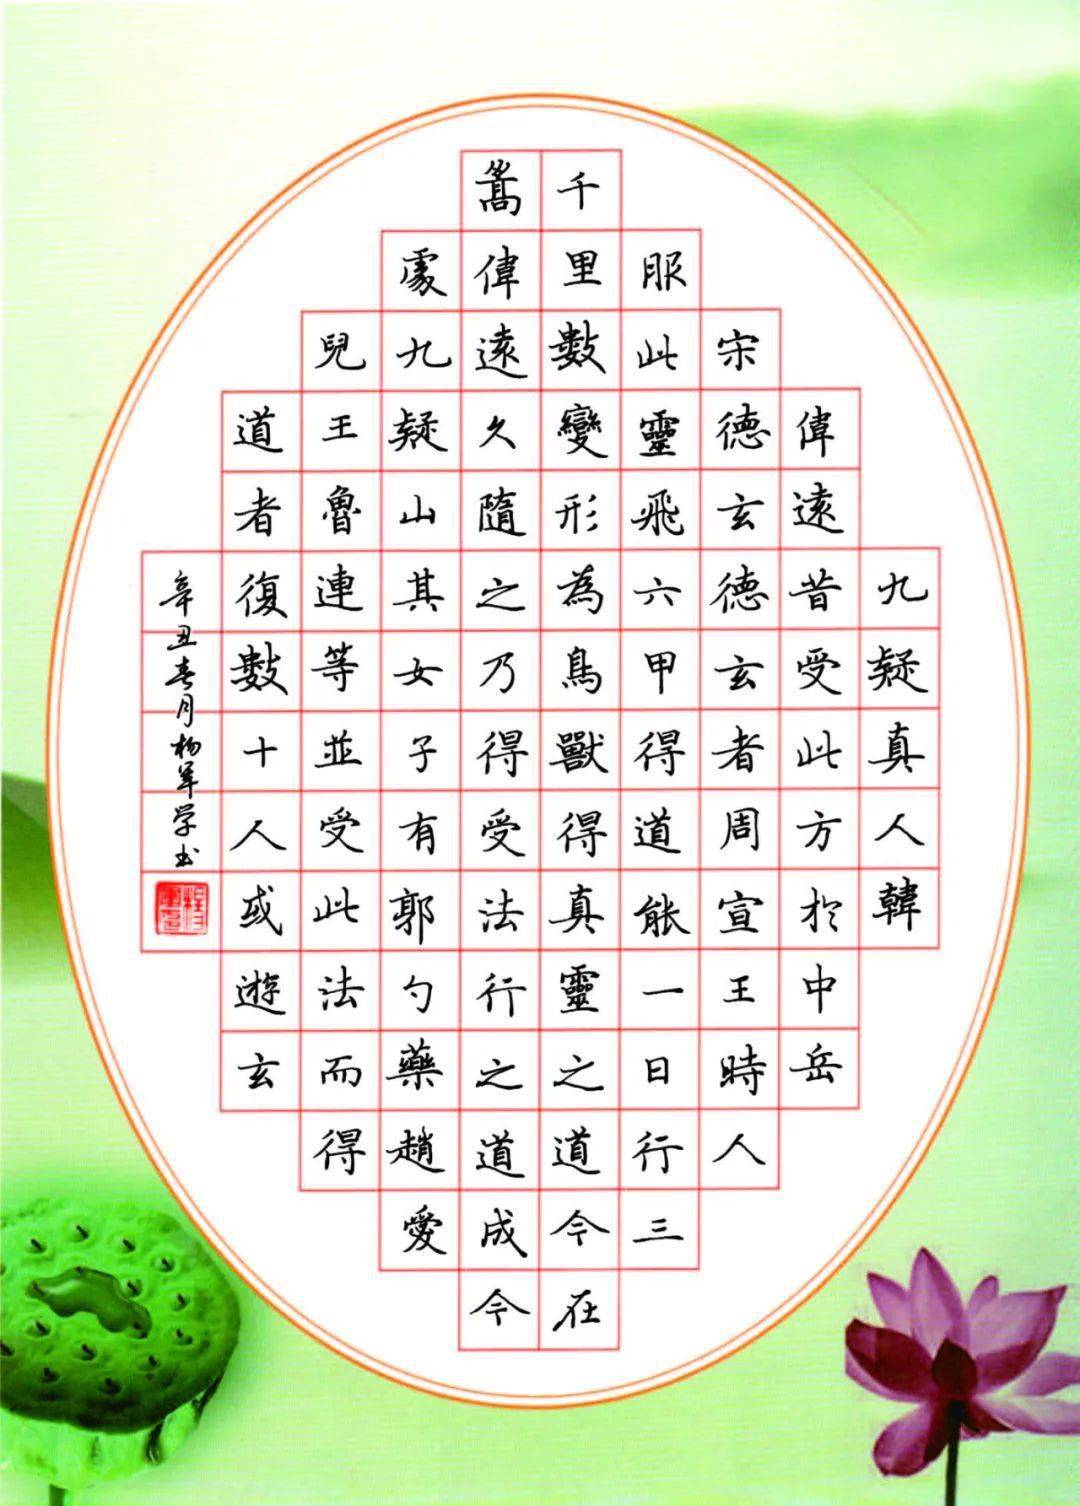 九疑真人韓
偉遠昔受此方於中岳
宋德玄德玄者周宣王時人
服此靈飛六甲得道能一日行三
千里數變形為鳥獸得真靈之道今在
嵩偉遠久隨之乃得受法行之道成今
處九疑山其女子有郭勺藥趙愛
兒王魯連等並受此法而得
道者復數十人或遊玄
辛丑春月杨军学书